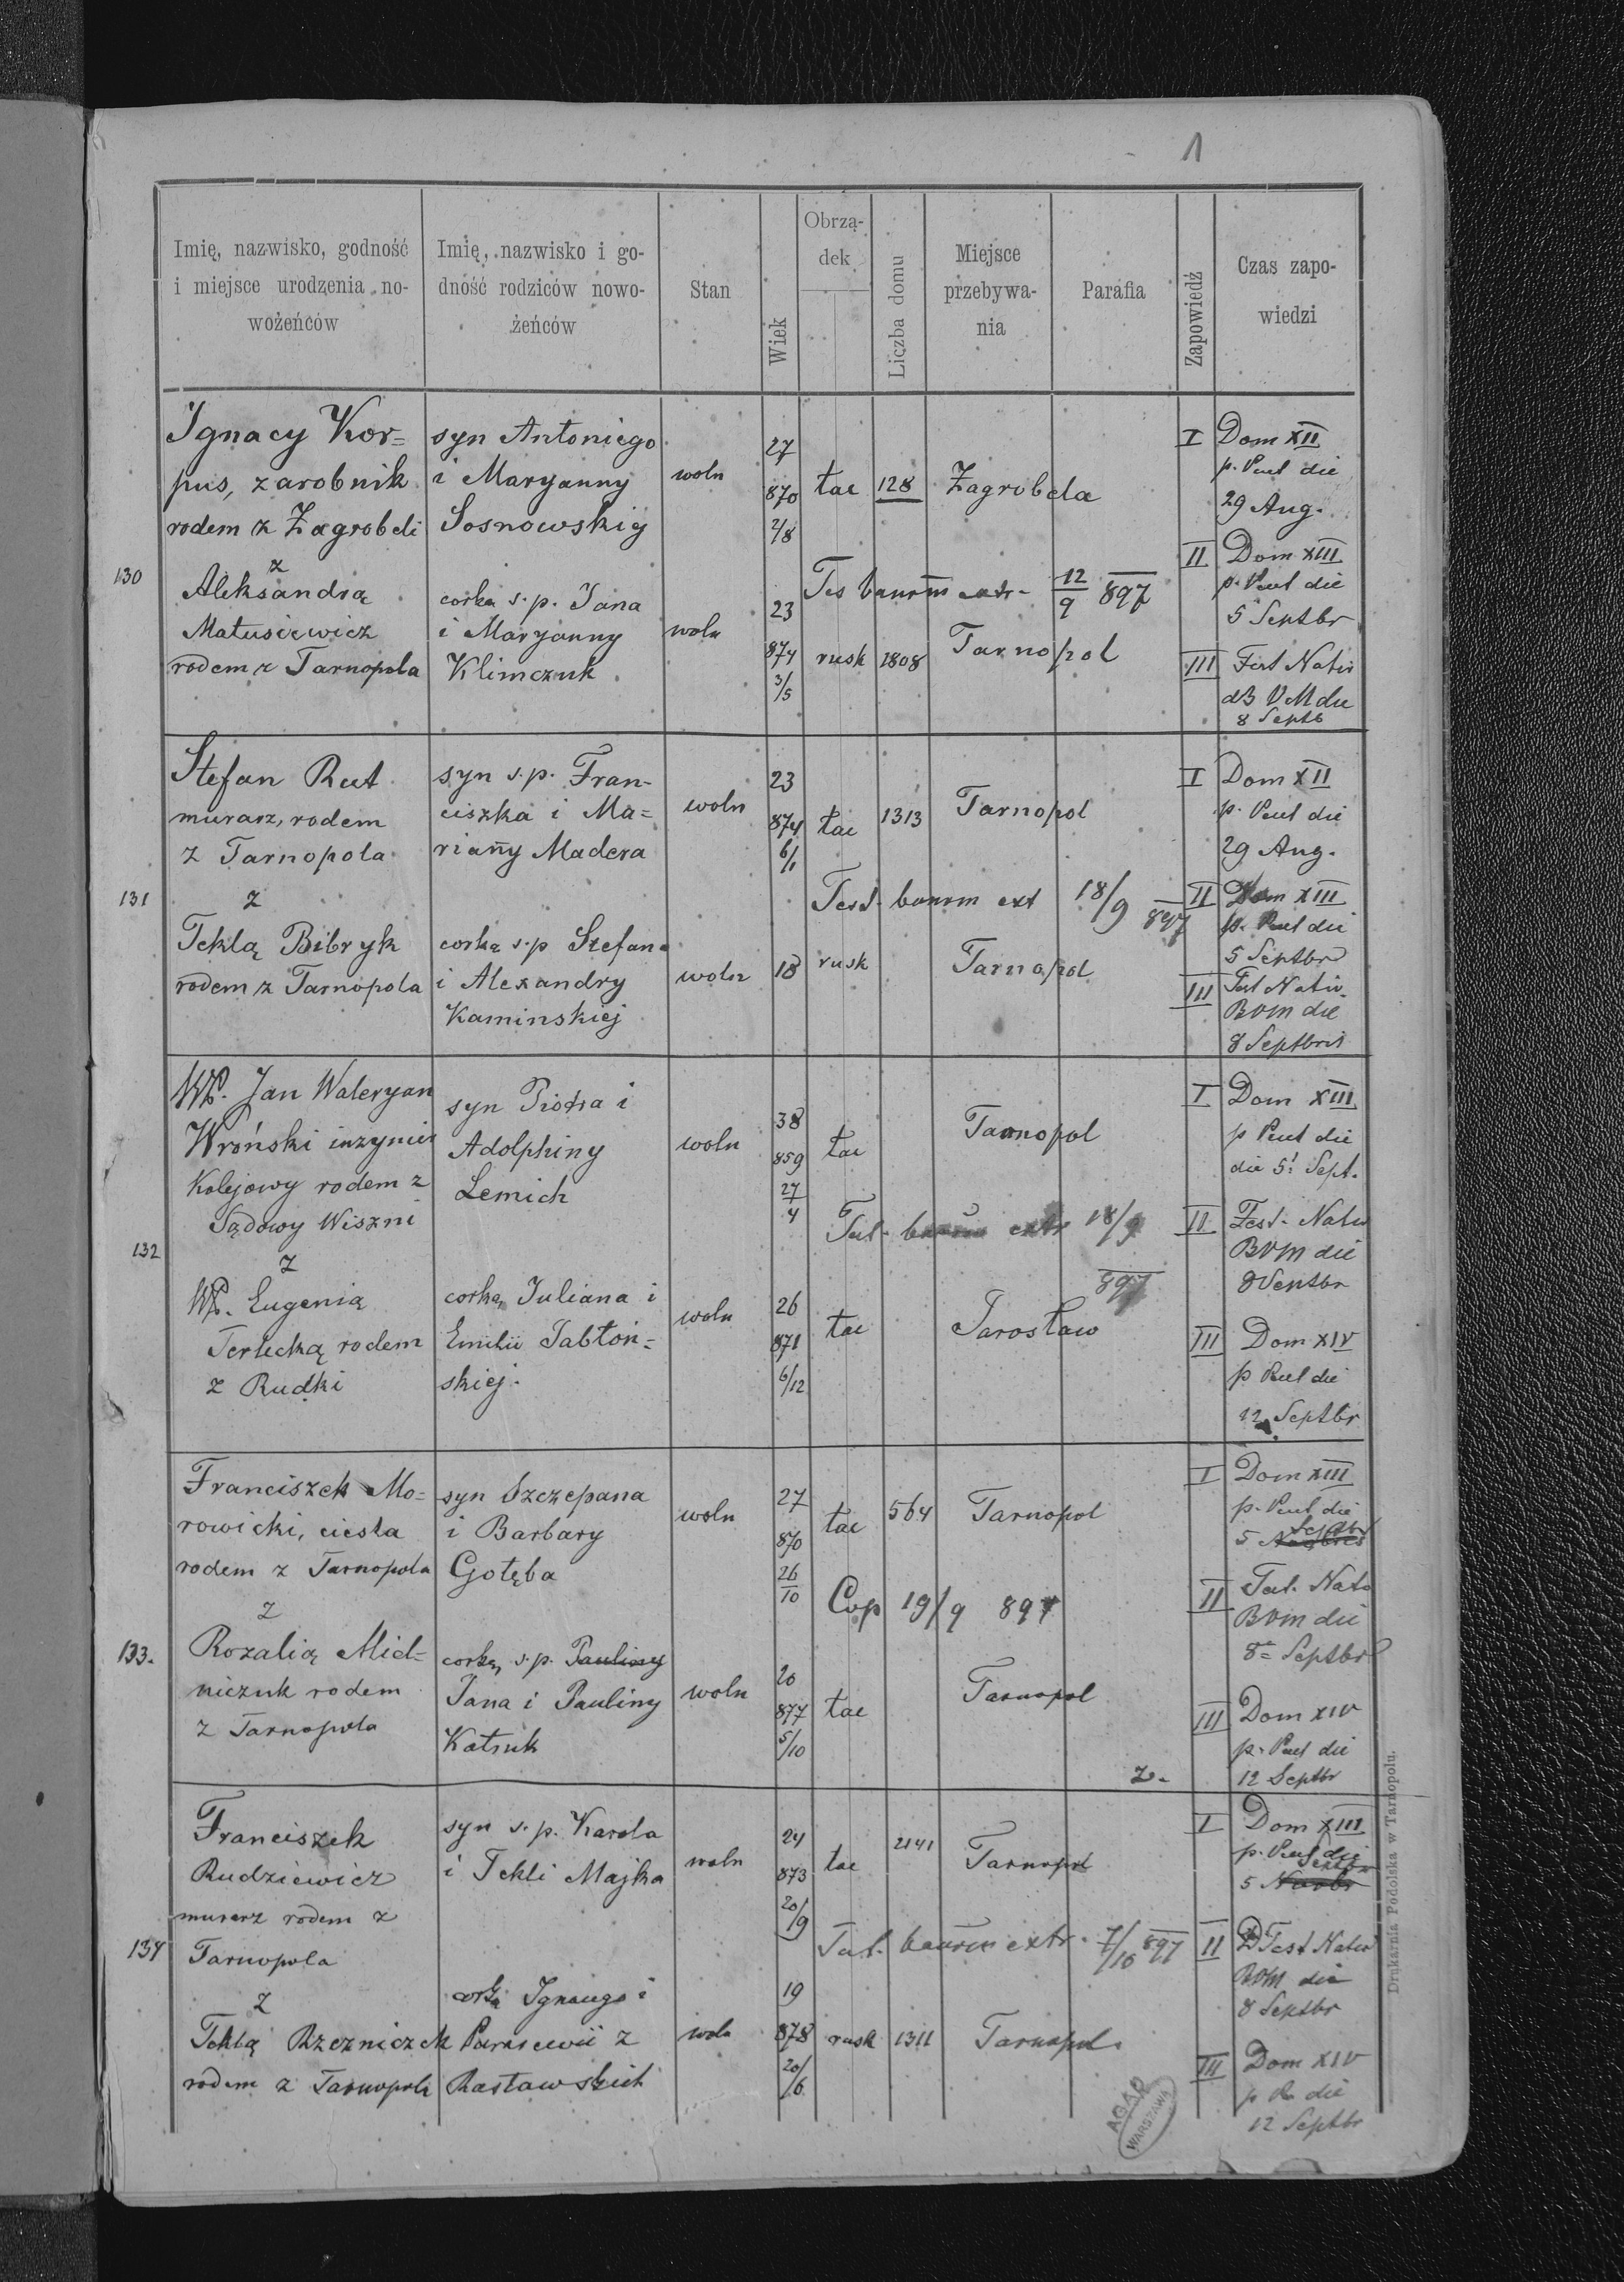 1
Imię, nazwisko, godność
i miejsce urodzenia no-
wożeńców
Imię, nazwisko i go-
dność rodziców nowo-
żeńców
Stan
Wiek
Obrzą-
dek
Liczba domu
Miejsce
przebywa-
nia
Parafia
Zapowiedź
Czas zapo-
wiedzi
130
Ignacy Kor=
pus, zarobnik
rodem z Zagrobeli
z
Aleksandrą
Matusiewicz
rodem z Tarnopola
syn Antoniego
i Maryanny
Sosnowskiej
corka s.p. Jana
i Maryanny
Klimczuk
woln
woln
27
870
2/8
23
874
3/5
łac
128
Zagrobela
Tes bannm extr. 12/9 897
rusk
1808
Tarnopol
I Dom XII
p. Pent die
29 Aug.
II Dom XIII
p. Pent die
5 Septbr
III Fest Nativ
dB VM die
8 Septb
131
Stefan Rut
murarz, rodem
z Tarnopola
z
Teklą Bibryk
rodem z Tarnopola
syn s.p. Fran-
ciszka i Ma=
rianny Madera
corką s.p Stefana
i Alexandry
Kaminskiej
woln
woln
23
874
6/1
18
łac
1313
Tarnopol
Test. bannm ext 18/9 897
rusk
Tarnopol
I Dom XII
p. Pent die
29 Aug.
II Dom XIII
p. Pent die
5 Septbr
III Fest Nativ.
BVM die
8 Septbris
132
WP. Jan Waleryan
Wroński inzynier
Kolejowy rodem z
Sądowy Wiszni
z
WP. Eugenią
Terlecką rodem
z Rudki
syn Piotra i
Adolphiny
Lemich
corką Juliana i
Emilii Jabłoń=
skiej.
woln
woln
38
859
27/4
26
871
6/12
łac
Tarnopol
Test. bannm extr 18/9
897
łac
Jarosław
I Dom XIII
p Pent die
die 5! Sept.
II Fest. Nativ
BVM die
8 Septbr
III Dom XIV
p Pent die
12 Septbr
133.
Franciszek Mo=
rowicki, ciesla
rodem z Tarnopola
z
Rozalią Miel=
niczuk rodem
z Tarnopola
syn Szczepana
i Barbary
Gołęba
corką s.p. Pauliny
Jana i Pauliny
Katruk
woln
woln
27
870
26/10
20
877
5/10
łac
564
Tarnopol
Cop 19/9 897
łac
Tarnopol
z.
I Dom XIII
p. Pent die
Septbr
5
II Fest. Nativ
BVM die
8= Septbr
III Dom XIV
p. Pent die
12 Septbr
134
Franciszek
Rudziewicz
murarz rodem z
Tarnopola
z
Teklą Rzezniczek
rodem z Tarnopola
syn s.p. Karola
i Tekli Majka
corką Ignacego i
Parascewii z
Rastawskich
woln
woln
24
873
20/9
19
878
20/6
łac
2141
Tarnopol
Test. bannm extr. 7/10 897
rusk
1311
Tarnopol
I Dom XIII
p. Pent die
Septbr
5
II Fest Nativ
BVM die
8 Septbr
III Dom XIV
p P die
12 Septbr
Drukarnia Podolska w Tarnopolu.
AGAD
WARSZAWA